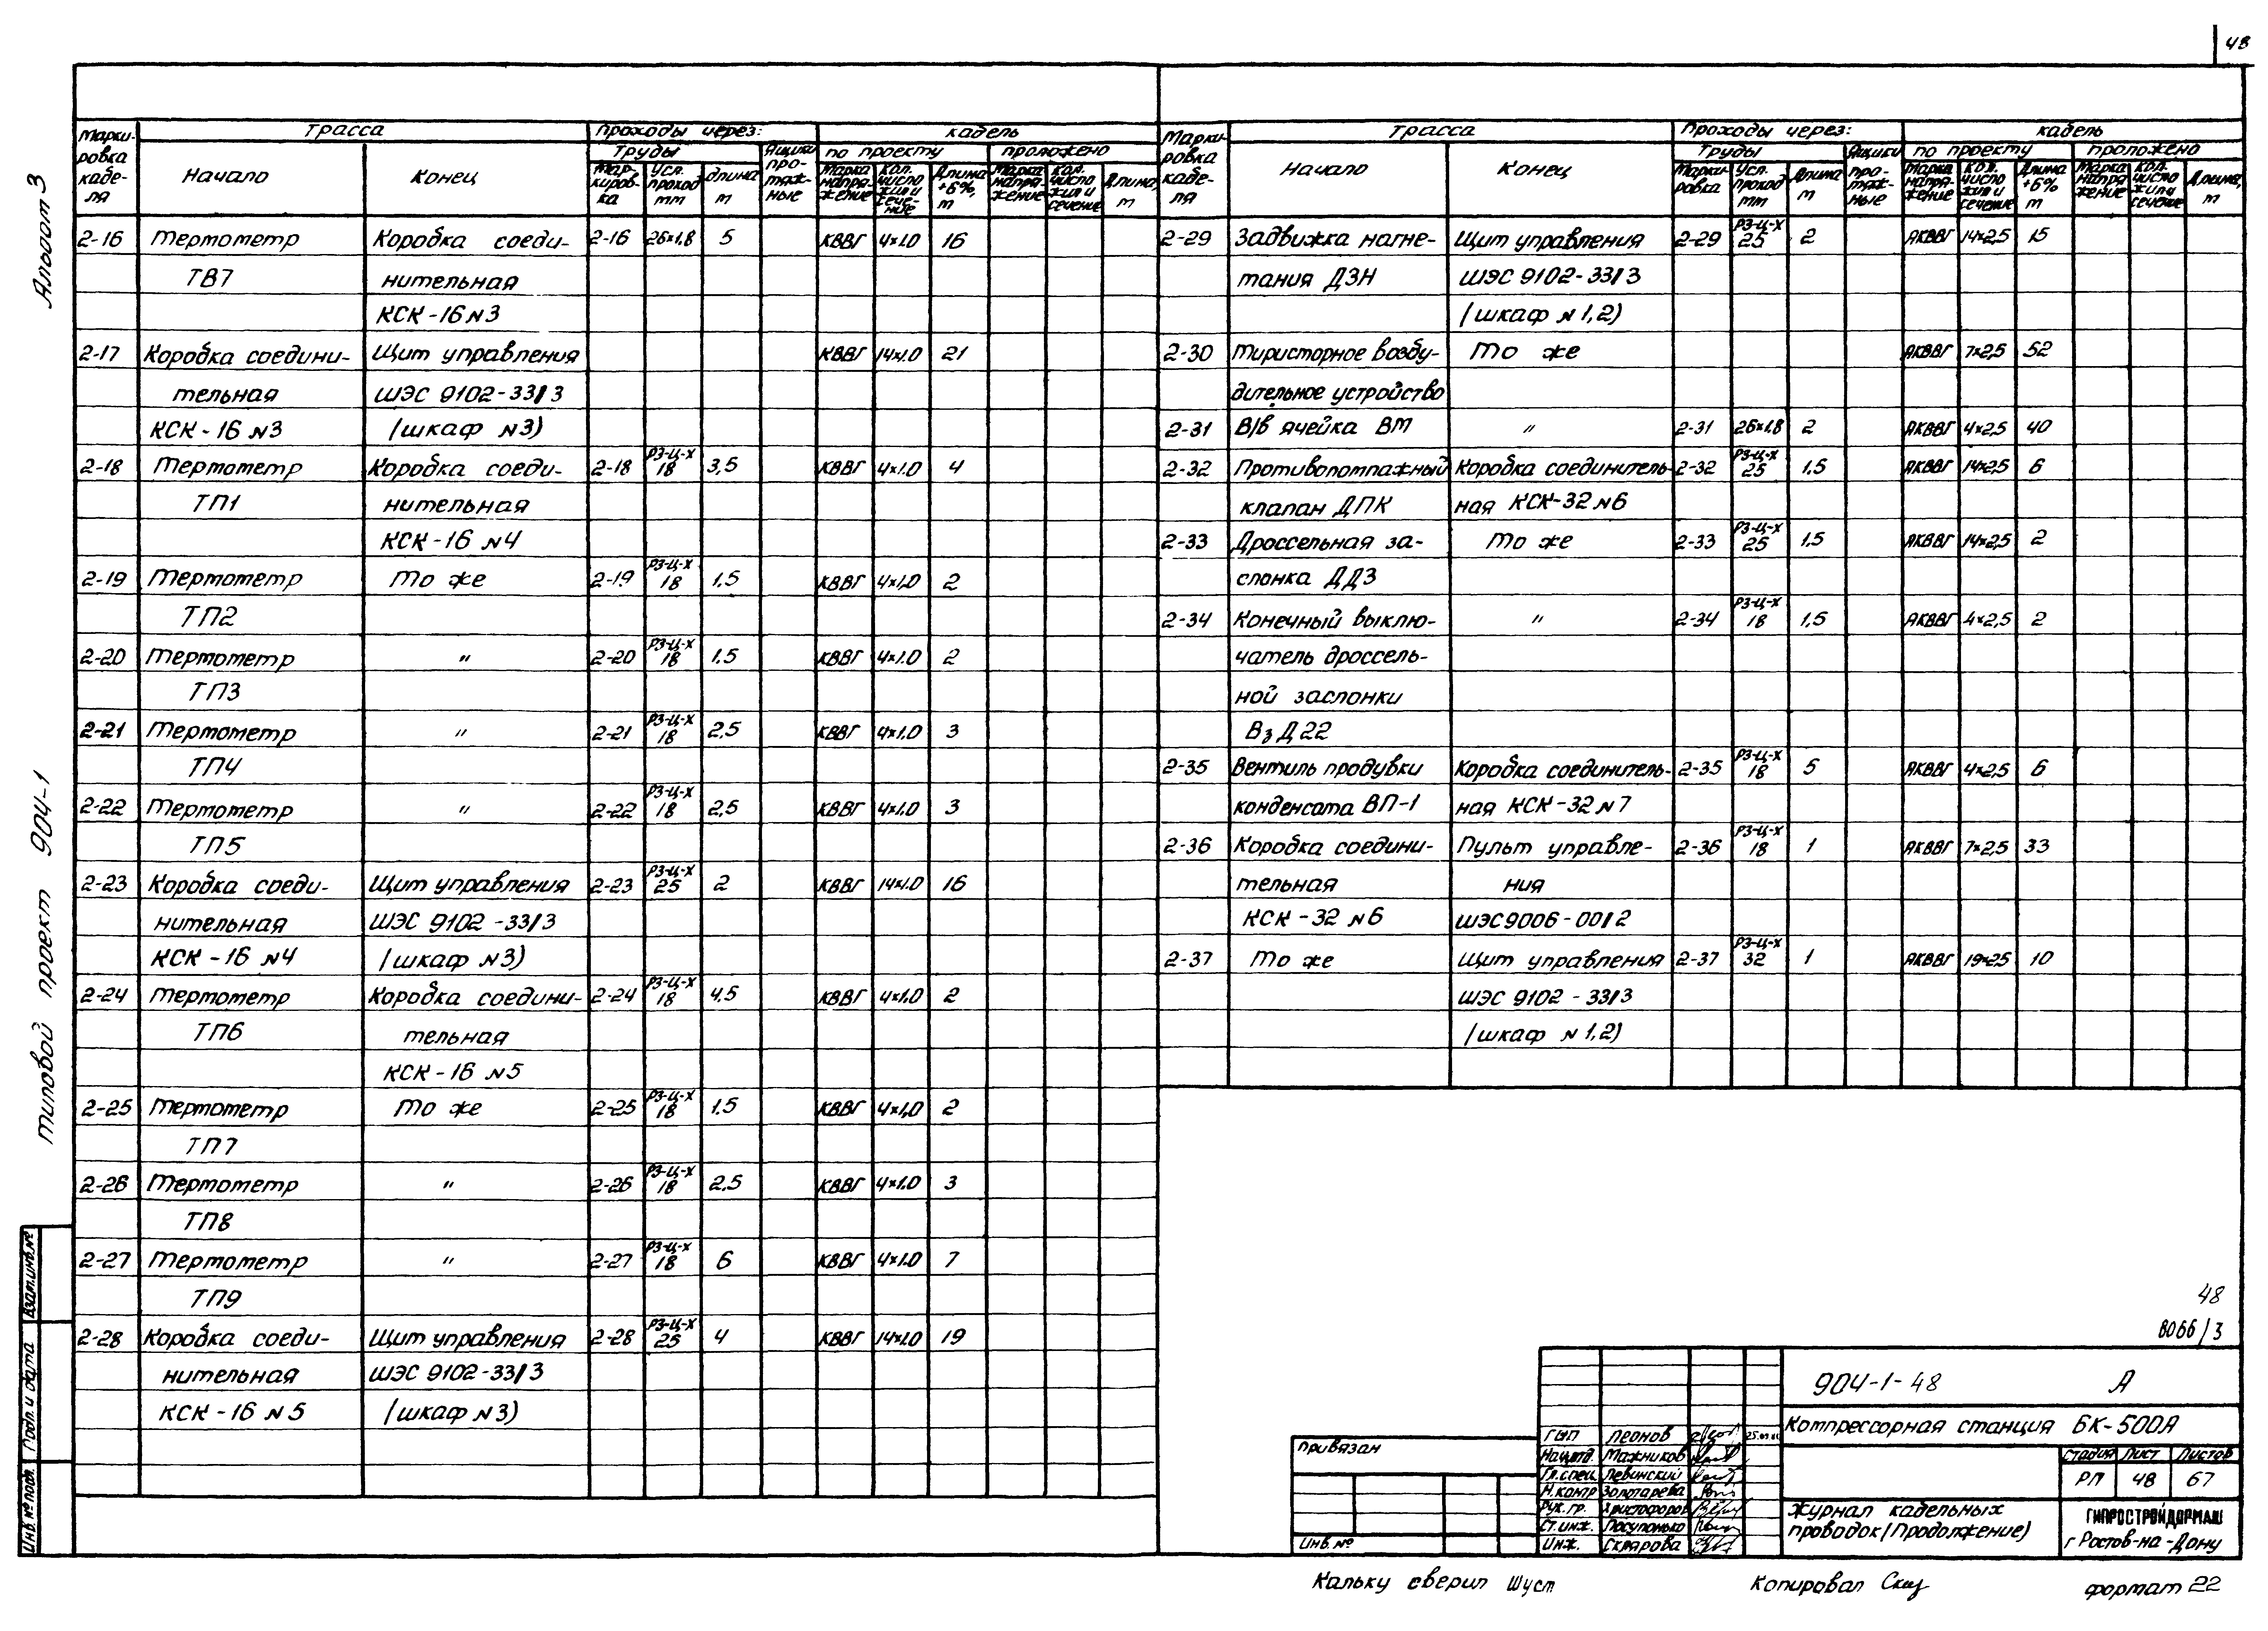 48
Альбом 3
типовой проект 904-1
Марки-ровка кабе-ля | Трасса | Проходы через: | кабель
Начало | Конец | Трубы | Ящики про-тяж-ные | по проекту | проложено
Мар-киров-ка | Усл. проход мм | длина м | Марка напря-жение | Кол. число жил и сече-ние | Длина +6%, м | Марка напря-жение | Кол. число жил и сечение | Длина, м
2-16 Термометр Коробка соеди- 2-16 26×1,8 5 КВВГ 4×1.0 16
ТВ7 нительная
КСК-16 №3
2-17 Коробка соедини- Щит управления КВВГ 14×1.0 21
тельная ШЭС 9102-33/3
КСК-16 №3 (шкаф №3)
2-18 Термометр Коробка соеди- 2-18 РЗ-Ц-Х 18 3,5 КВВГ 4×1.0 4
ТП1 нительная
КСК-16 №4
2-19 Термометр То же 2-19 РЗ-Ц-Х 18 1,5 КВВГ 4×1,0 2
ТП2
2-20 Термометр " 2-20 РЗ-Ц-Х 18 1,5 КВВГ 4×1.0 2
ТП3
2-21 Термометр " 2-21 РЗ-Ц-Х 18 2,5 КВВГ 4×1.0 3
ТП4
2-22 Термометр " 2-22 РЗ-Ц-Х 18 2,5 КВВГ 4×1.0 3
ТП5
2-23 Коробка соеди- Щит управления 2-23 РЗ-Ц-Х 25 2 КВВГ 14×1.0 16
нительная ШЭС 9102-33/3
КСК-16 №4 (шкаф №3)
2-24 Термометр Коробка соедини- 2-24 РЗ-Ц-Х 18 4,5 КВВГ 4×1,0 2
ТП6 тельная
КСК-16 №5
2-25 Термометр То же 2-25 РЗ-Ц-Х 18 1,5 КВВГ 4×1,0 2
ТП7
2-26 Термометр " 2-26 РЗ-Ц-Х 18 2,5 КВВГ 4×1.0 3
ТП8
2-27 Термометр " 2-27 РЗ-Ц-Х 18 6 КВВГ 4×1.0 7
ТП9
2-28 Коробка соеди- Щит управления 2-28 РЗ-Ц-Х 25 4 КВВГ 14×1.0 19
нительная ШЭС 9102-33/3
КСК-16 №5 (шкаф №3)
Марки-ровка кабе-ля | Трасса | Проходы через: | кабель
Начало | Конец | Трубы | Ящики про-тяж-ные | по проекту | проложено
Марки-ровка | Усл. проход мм | Длина м | Марка напря-жение | Кол. число жил и сечение | Длина +6% м | Марка напря-жение | Кол. число жил и сечение | Длина, м
2-29 Задвижка нагне- Щит управления 2-29 РЗ-Ц-Х 25 2 АКВВГ 14×2,5 15
тания ДЗН ШЭС 9102-33/3
(шкаф №1,2)
2-30 Тиристорное возбу- То же АКВВГ 7×2,5 52
дительное устройство
2-31 В/в ячейка ВМ " 2-31 26×1,8 2 АКВВГ 4×2,5 40
2-32 Противопомпажный Коробка соединитель- 2-32 РЗ-Ц-Х 25 1,5 АКВВГ 14×2,5 6
клапан ДПК ная КСК-32 №6
2-33 Дроссельная за- То же 2-33 РЗ-Ц-Х 25 1,5 АКВВГ 14×2,5 2
слонка ДДЗ
2-34 Конечный выклю- " 2-34 РЗ-Ц-Х 18 1,5 АКВВГ 4×2,5 2
чатель дроссель-
ной заслонки
ВзД22
2-35 Вентиль продувки Коробка соединитель- 2-35 РЗ-Ц-Х 18 5 АКВВГ 4×2,5 6
конденсата ВП-1 ная КСК-32 №7
2-36 Коробка соедини- Пульт управле- 2-36 РЗ-Ц-Х 18 1 АКВВГ 7×2,5 33
тельная ния
КСК-32 №6 ШЭС9006-00/2
2-37 То же Щит управления 2-37 РЗ-Ц-Х 32 1 АКВВГ 19×2,5 10
ШЭС 9102-33/3
(шкаф №1,2)
48
8066/3
904-1-48 А
Компрессорная станция 6К-500А
Стадия Лист Листов
РП 48 67
Журнал кабельных
проводок (Продолжение)
ГИПРОСТРОЙДОРМАШ
г Ростов-на-Дону
ГИП Леонов
Нач.отд. Мажников
Гл.спец. Левинский
Н.контр Золотарева
Рук.гр. Христофоров
Ст.инж. Посупонько
Инж. Склярова
Привязан
Инв.№
Взам.инв.№
Подп. и дата
Инв.№ подл.
Кальку сверил Шуст
Копировал
формат 22